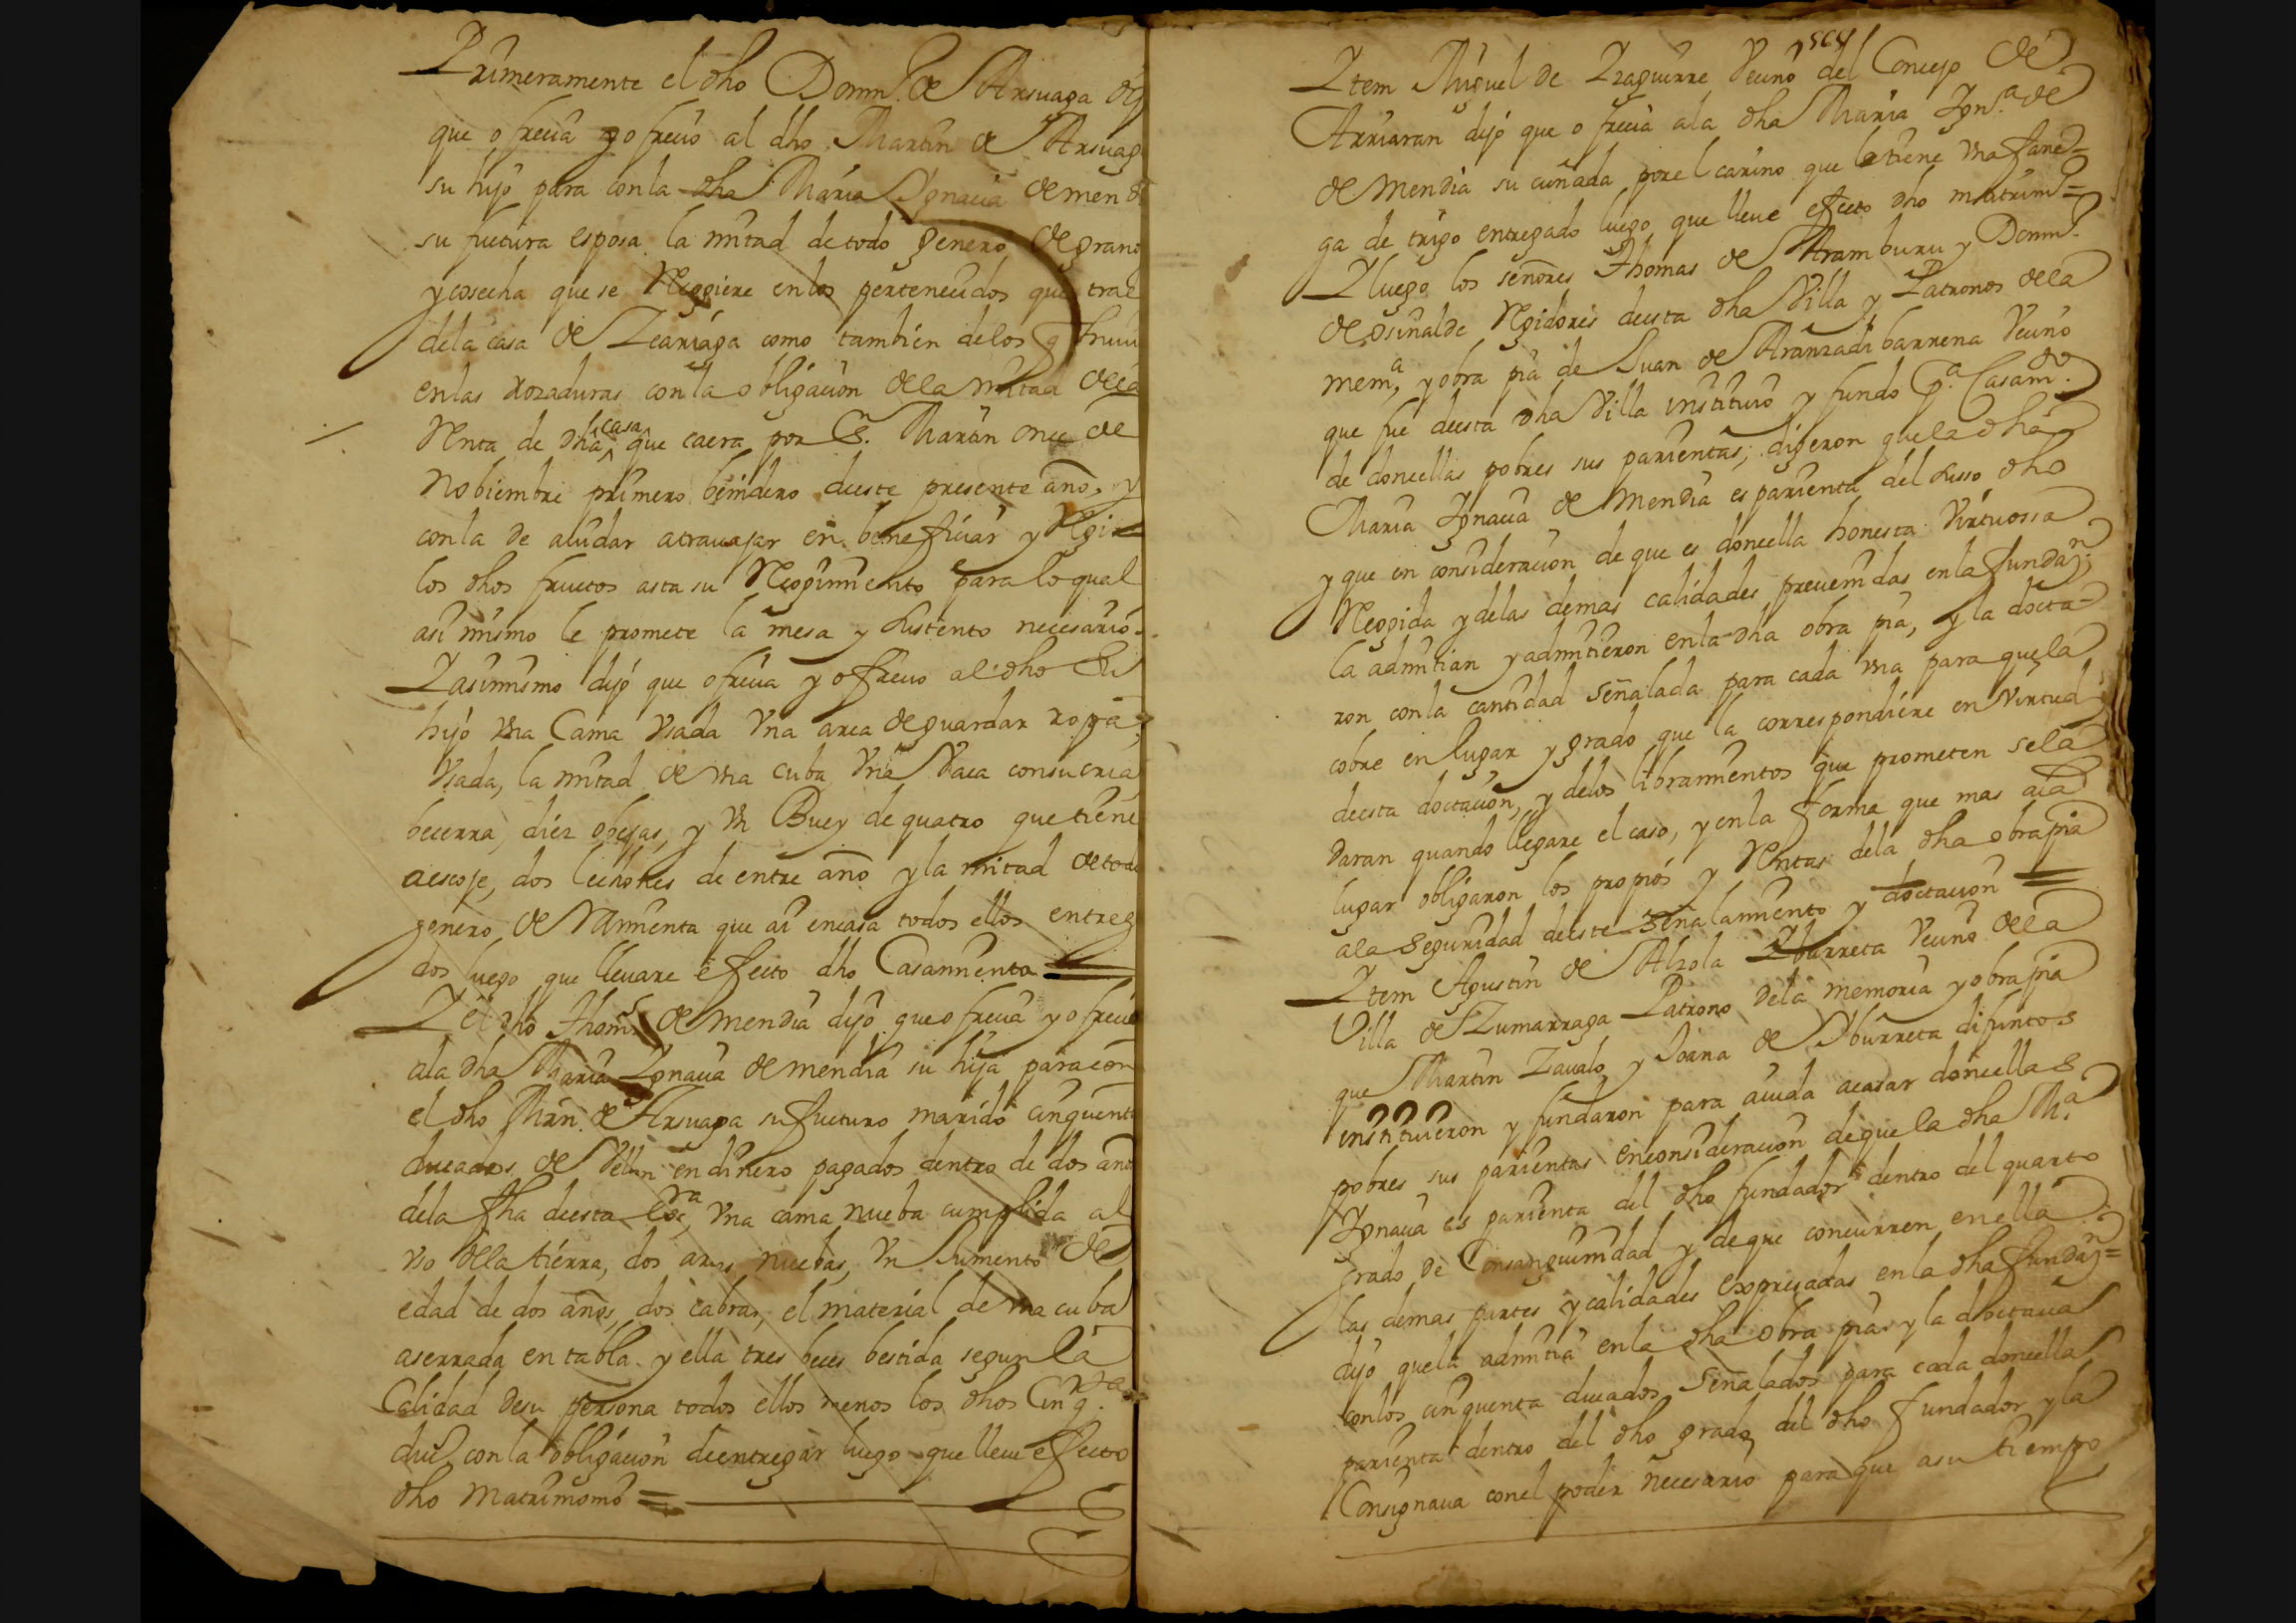 Primeramente el dho Domin.º de Arsuaga dij
que ofrecia y ofrecio al dho Martin de Arsuag
su hijo para con la dha Maria Ignacia de mendi
su fuctura esposa la mitad de todo genero de grano
y cosecha que se Recogiere en los pertenecidos que trae
de la casa de Leariaga como tambien de los q
en las rozaduras con la obligacion de la mitad de la
Renta de dha casa que caera por S. Martin once de
Nobiembre primero benidero de este presente año, y
con la de aiudar a trauajar en beneficiar y Regir
los dhos fructos asta su Recogimiento para lo qual
asi mismo le promete la mesa y sustento necesario.
Y asimismo dijo que ofrecia y ofrecio al dho su
hijo vna Cama vsada vna arca de guardar ropa,
vsada, la mitad de vna cuba vna vaca con su cria
becerra, diez obejas, y vn Buey de quatro que tiene
a escoje, dos lechones de entre año y la mitad de todo
genero de Ramienta que ai en casa todos ellos entreg
dos luego que lleuare efecto dho Casamiento
Y el dho Thom.s de mendia dijo que ofrecia y ofrecio
a la dha Maria Ignacia de mendia su hija para con
el dho Mrn. de Arsuaga su fucturo marido cinquenta
ducados de Vellon en dinero pagados dentro de dos años
de la fha de esta escra, vna cama nueba cumplida al
vso de la tierra, dos arcas nuebas, vn Jumento de
edad de dos años, dos cabras, el material de vna cuba
aserrada en tabla y ella tres beces bestida segun la
Calidad de su persona todos ellos menos los dhos Cinq.ta
ducs con la obligacion de entregar luego que lleue efecto
dho Matrimonio =
Item Miguel de Izaguirre Vecino del Concejo de
Arriaran dijo que ofrecia a la dha Maria Ign.a de
de Mendia su cuñada por el cariño que le tiene vna fane=
ga de trigo entregado luego que lleue efecto dho matrim.º=
Y luego los señores Thomas de Aramburu y Domin.º
de osinalde Regidores de esta dha Villa y Patronos de la
mem.a, y obra pia de Juan de Aranzadi barrena Vecino
que fue de esta dha Villa instituio y fundo p.a Casam.to
de doncellas pobres sus parientas; digeron que la dha
Maria Ignacia de Mendia es parienta del susso dho
y que en consideracion de que es doncella honesta Virtuossa
Recogida y de las demas calidades preuenidas en la fundaz.n
la admitian y admitieron en la dha obra pia, y la docta=
ron con la cantidad señalada para cada vna para que la
cobre en lugar y grado que la correspondiere en Virtud
de esta doctacion, y de los libramientos que prometen se la
daran quando llegare el caso, y en la forma que mas aia
lugar obligaron los propios y Rentas de la dha obra pia
a la seguridad de este señalamiento y doctacion =
Item Agustin de Alzola Yburreta Vecino de la
Villa de Zumarraga Patrono de la memoria y obra pia
que Martin Zaualo y Joana de Yburreta difuntos
instituieron y fundaron para aiuda a casar doncellas
pobres sus parientas en consideracion de que la dha M.a
Ignacia es parienta del dho fundador dentro del quarto
grado de Consanguinidad y de que concurren en ella
las demas partes y calidades expresadas en la dha fundaz.n=
dijo que la admitia en la dha obra pia y la doctaua
con los cinquenta ducados señalados para cada doncella
parienta dentro del dho grado del dho fundador y la
Consignaua con el poder necesario para que a su tiempo